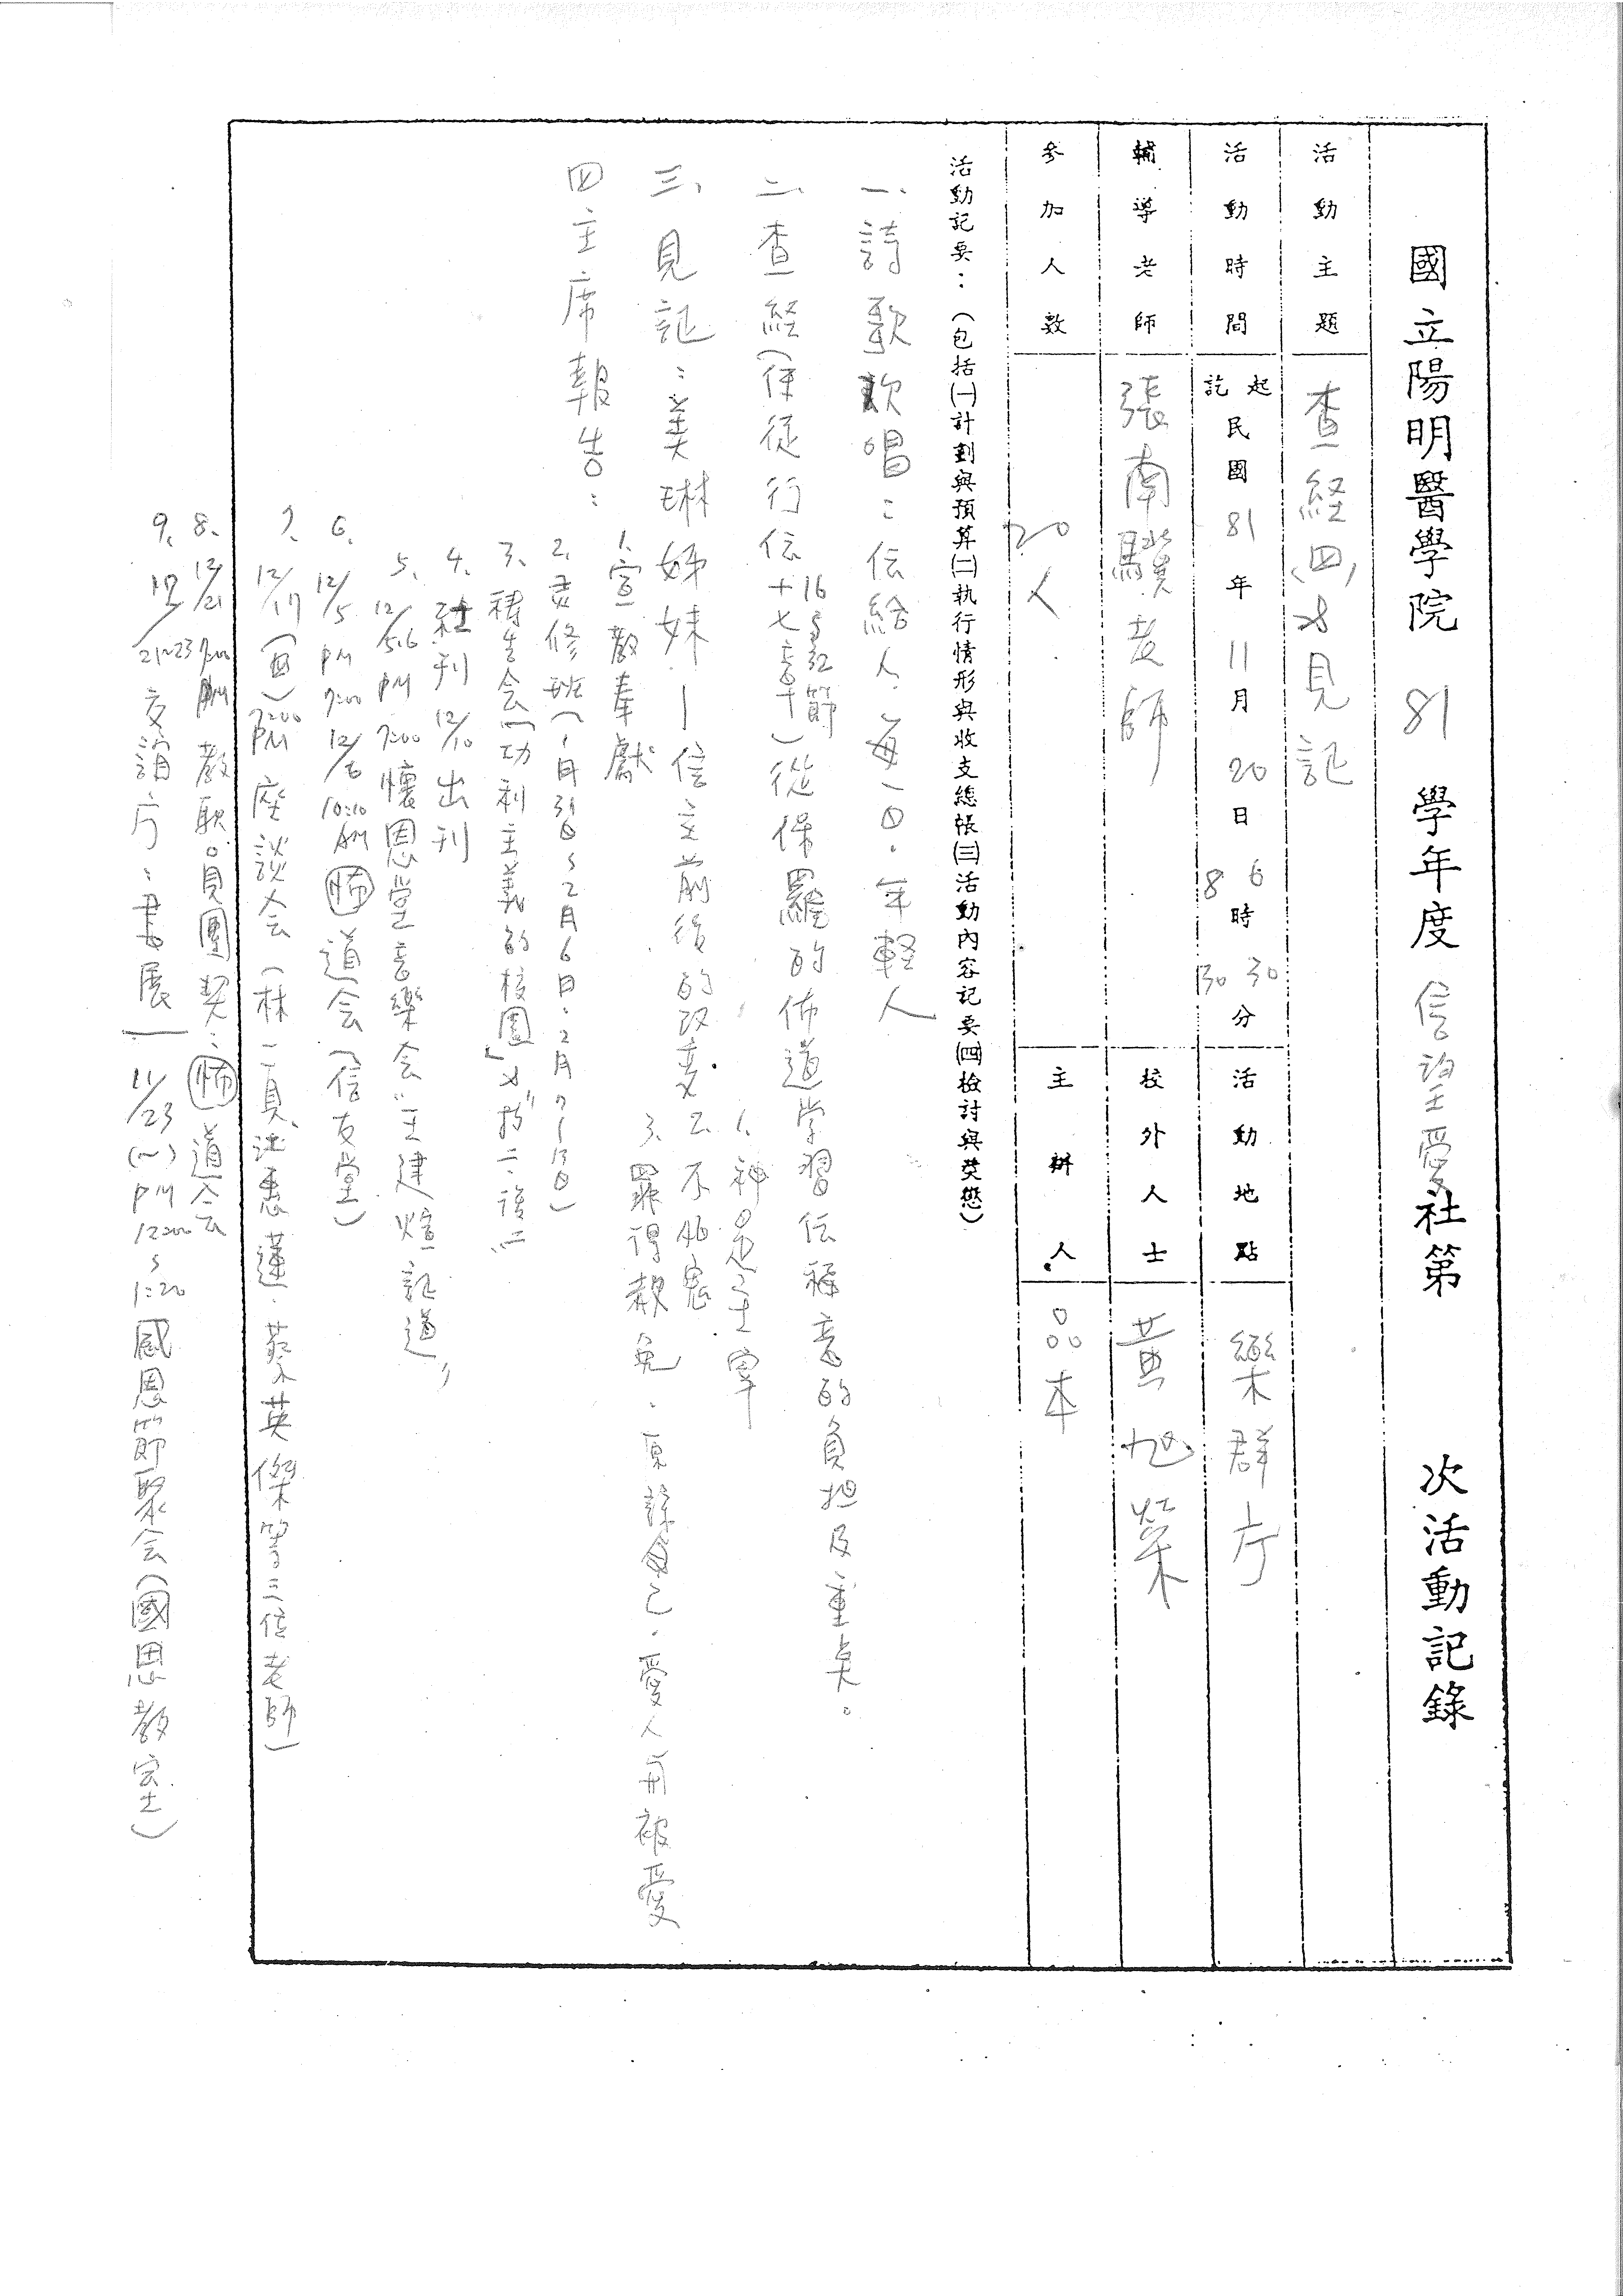 國立陽明醫學院 81 學年度 信望愛社第 次活動記錄
活動主題 查經(四)見証
活動時間 起訖 民國81年11月20日 6時30分 8 30
活動地點 樂群厅
輔導老師 張南驥老師
校外人士 黃旭榮
參加人數 20人
主辦人 品本
活動記要：（包括㈠計劃與預算㈡執行情形與收支總帳㈢活動內容記要㈣檢討與獎懲）
一、詩歌歡唱：伝給人．每一日．年軽人
二、查経(使徒行伝十七章)從保羅的佈道学習伝福音的負担及重点。
16 節
三、見証：美琳姊妹—信主前後的改变
1. 神是主宰
2. 不必完
3. 罪得赦免．更認識自己．愛人被愛
四主席報告：
1. 宣教奉獻
2. 灵修班(1月31日~2月6日．2月7~13日)
3. 禱告会「功利主義的校園」
4. 社刊 12/10 出刊
5. 12/5.6 PM 7:00 懷恩堂音樂会"王建煊証道"
6. 12/5 PM 7:00 12/6 10:10 AM 佈道会(信友堂)
7. 12/17(四) 7:00 PM 座談会(林一真、沈惠蓮．蔡英傑等三位老師)
8. 12/21 7:00 教職員團契：佈道会
9. 21~23 交誼厅：書展
11/23 (一) PM 12:00~1:20 感恩節聚会(國思教室)